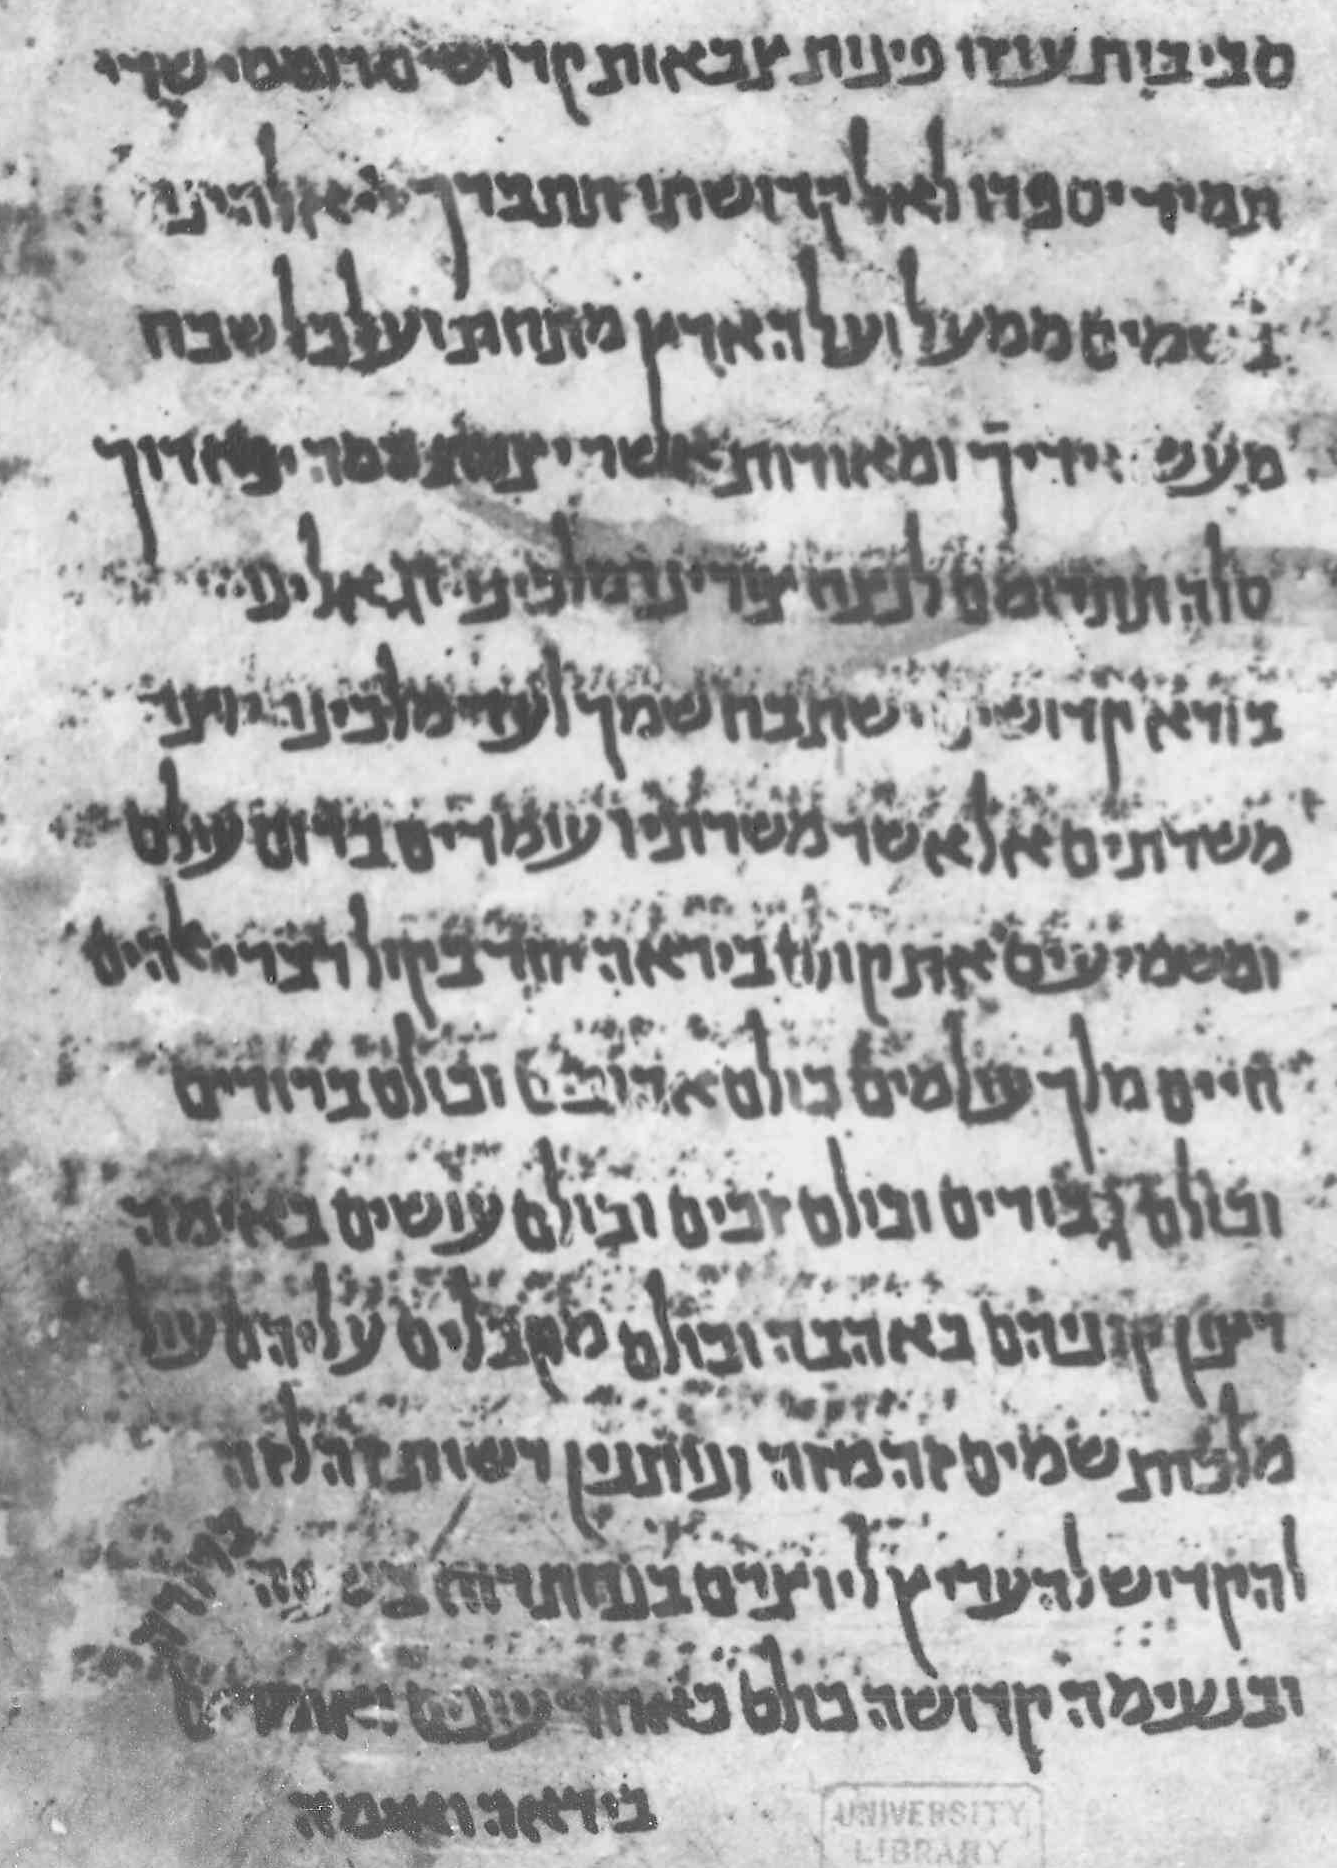 סביבות עוזו פינות צבאות קדושי מרוממי שדי
תמיד יספרו לאל קדושתו תתברך אלהינו
בשמים ממעל ועל הארץ מתחת ועל כל שבח
מעשי ידיך ומאורות אשר יצרת המה יפארוך
סלה תתרומם לנצח צורינו מלכינו וגאלינו
בורא קדושים ישתבח שמך לעד מלכינו יוצר
משרתים אלא אשר משרתיו עומדים ברום עולם
ומשמיעים את קולם ביראה יחד בקול דברי אלהים
חיים מלך עולמים כולם אהובים וכולם ברורים
וכולם גבורים וכולם זכים וכולם עושים באימה
רצון קוניהם באהבה וכולם מקבלים עליהם עול
מלכות שמים זה מזה ונותנין רשות זה לזה
להקדיש להעריץ ליוצרם בנחת רוח בשפה ברורה
ובנעימה קדושה כולם כאחד עונים ואומרים
ביראה ואימה
UNIVERSITY
LIBRARY